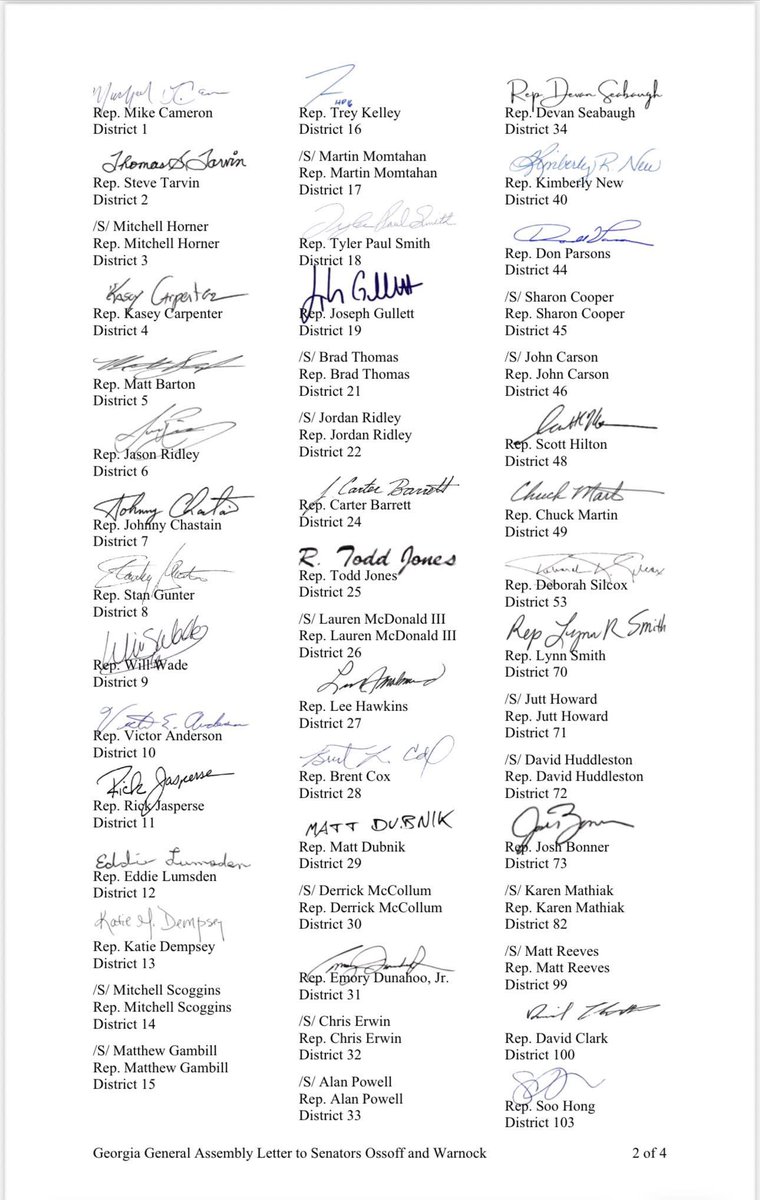 Rep. Mike Cameron
District 1
Thomas S. Tarvin
Rep. Steve Tarvin
District 2
/S/ Mitchell Horner
Rep. Mitchell Horner
District 3
Kasey Carpenter
Rep. Kasey Carpenter
District 4
Rep. Matt Barton
District 5
Rep. Jason Ridley
District 6
Johnny Chastain
Rep. Johnny Chastain
District 7
Rep. Stan Gunter
District 8
Rep. Will Wade
District 9
Victor E. Anderson
Rep. Victor Anderson
District 10
Rick Jasperse
Rep. Rick Jasperse
District 11
Eddie Lumsden
Rep. Eddie Lumsden
District 12
Katie M. Dempsey
Rep. Katie Dempsey
District 13
/S/ Mitchell Scoggins
Rep. Mitchell Scoggins
District 14
/S/ Matthew Gambill
Rep. Matthew Gambill
District 15
Rep. Trey Kelley
District 16
/S/ Martin Momtahan
Rep. Martin Momtahan
District 17
Tyler Paul Smith
Rep. Tyler Paul Smith
District 18
Gullett
Rep. Joseph Gullett
District 19
/S/ Brad Thomas
Rep. Brad Thomas
District 21
/S/ Jordan Ridley
Rep. Jordan Ridley
District 22
J Carter Barrett
Rep. Carter Barrett
District 24
R. Todd Jones
Rep. Todd Jones
District 25
/S/ Lauren McDonald III
Rep. Lauren McDonald III
District 26
Rep. Lee Hawkins
District 27
Brent L. Cox
Rep. Brent Cox
District 28
MATT DUBNIK
Rep. Matt Dubnik
District 29
/S/ Derrick McCollum
Rep. Derrick McCollum
District 30
Rep. Emory Dunahoo, Jr.
District 31
/S/ Chris Erwin
Rep. Chris Erwin
District 32
/S/ Alan Powell
Rep. Alan Powell
District 33
Rep. Devan Seabaugh
Rep. Devan Seabaugh
District 34
Kimberly R. New
Rep. Kimberly New
District 40
Rep. Don Parsons
District 44
/S/ Sharon Cooper
Rep. Sharon Cooper
District 45
/S/ John Carson
Rep. John Carson
District 46
Rep. Scott Hilton
District 48
Chuck Martin
Rep. Chuck Martin
District 49
Rep. Deborah Silcox
District 53
Rep Lynn R Smith
Rep. Lynn Smith
District 70
/S/ Jutt Howard
Rep. Jutt Howard
District 71
/S/ David Huddleston
Rep. David Huddleston
District 72
Rep. Josh Bonner
District 73
/S/ Karen Mathiak
Rep. Karen Mathiak
District 82
/S/ Matt Reeves
Rep. Matt Reeves
District 99
Rep. David Clark
District 100
Rep. Soo Hong
District 103
Georgia General Assembly Letter to Senators Ossoff and Warnock 2 of 4